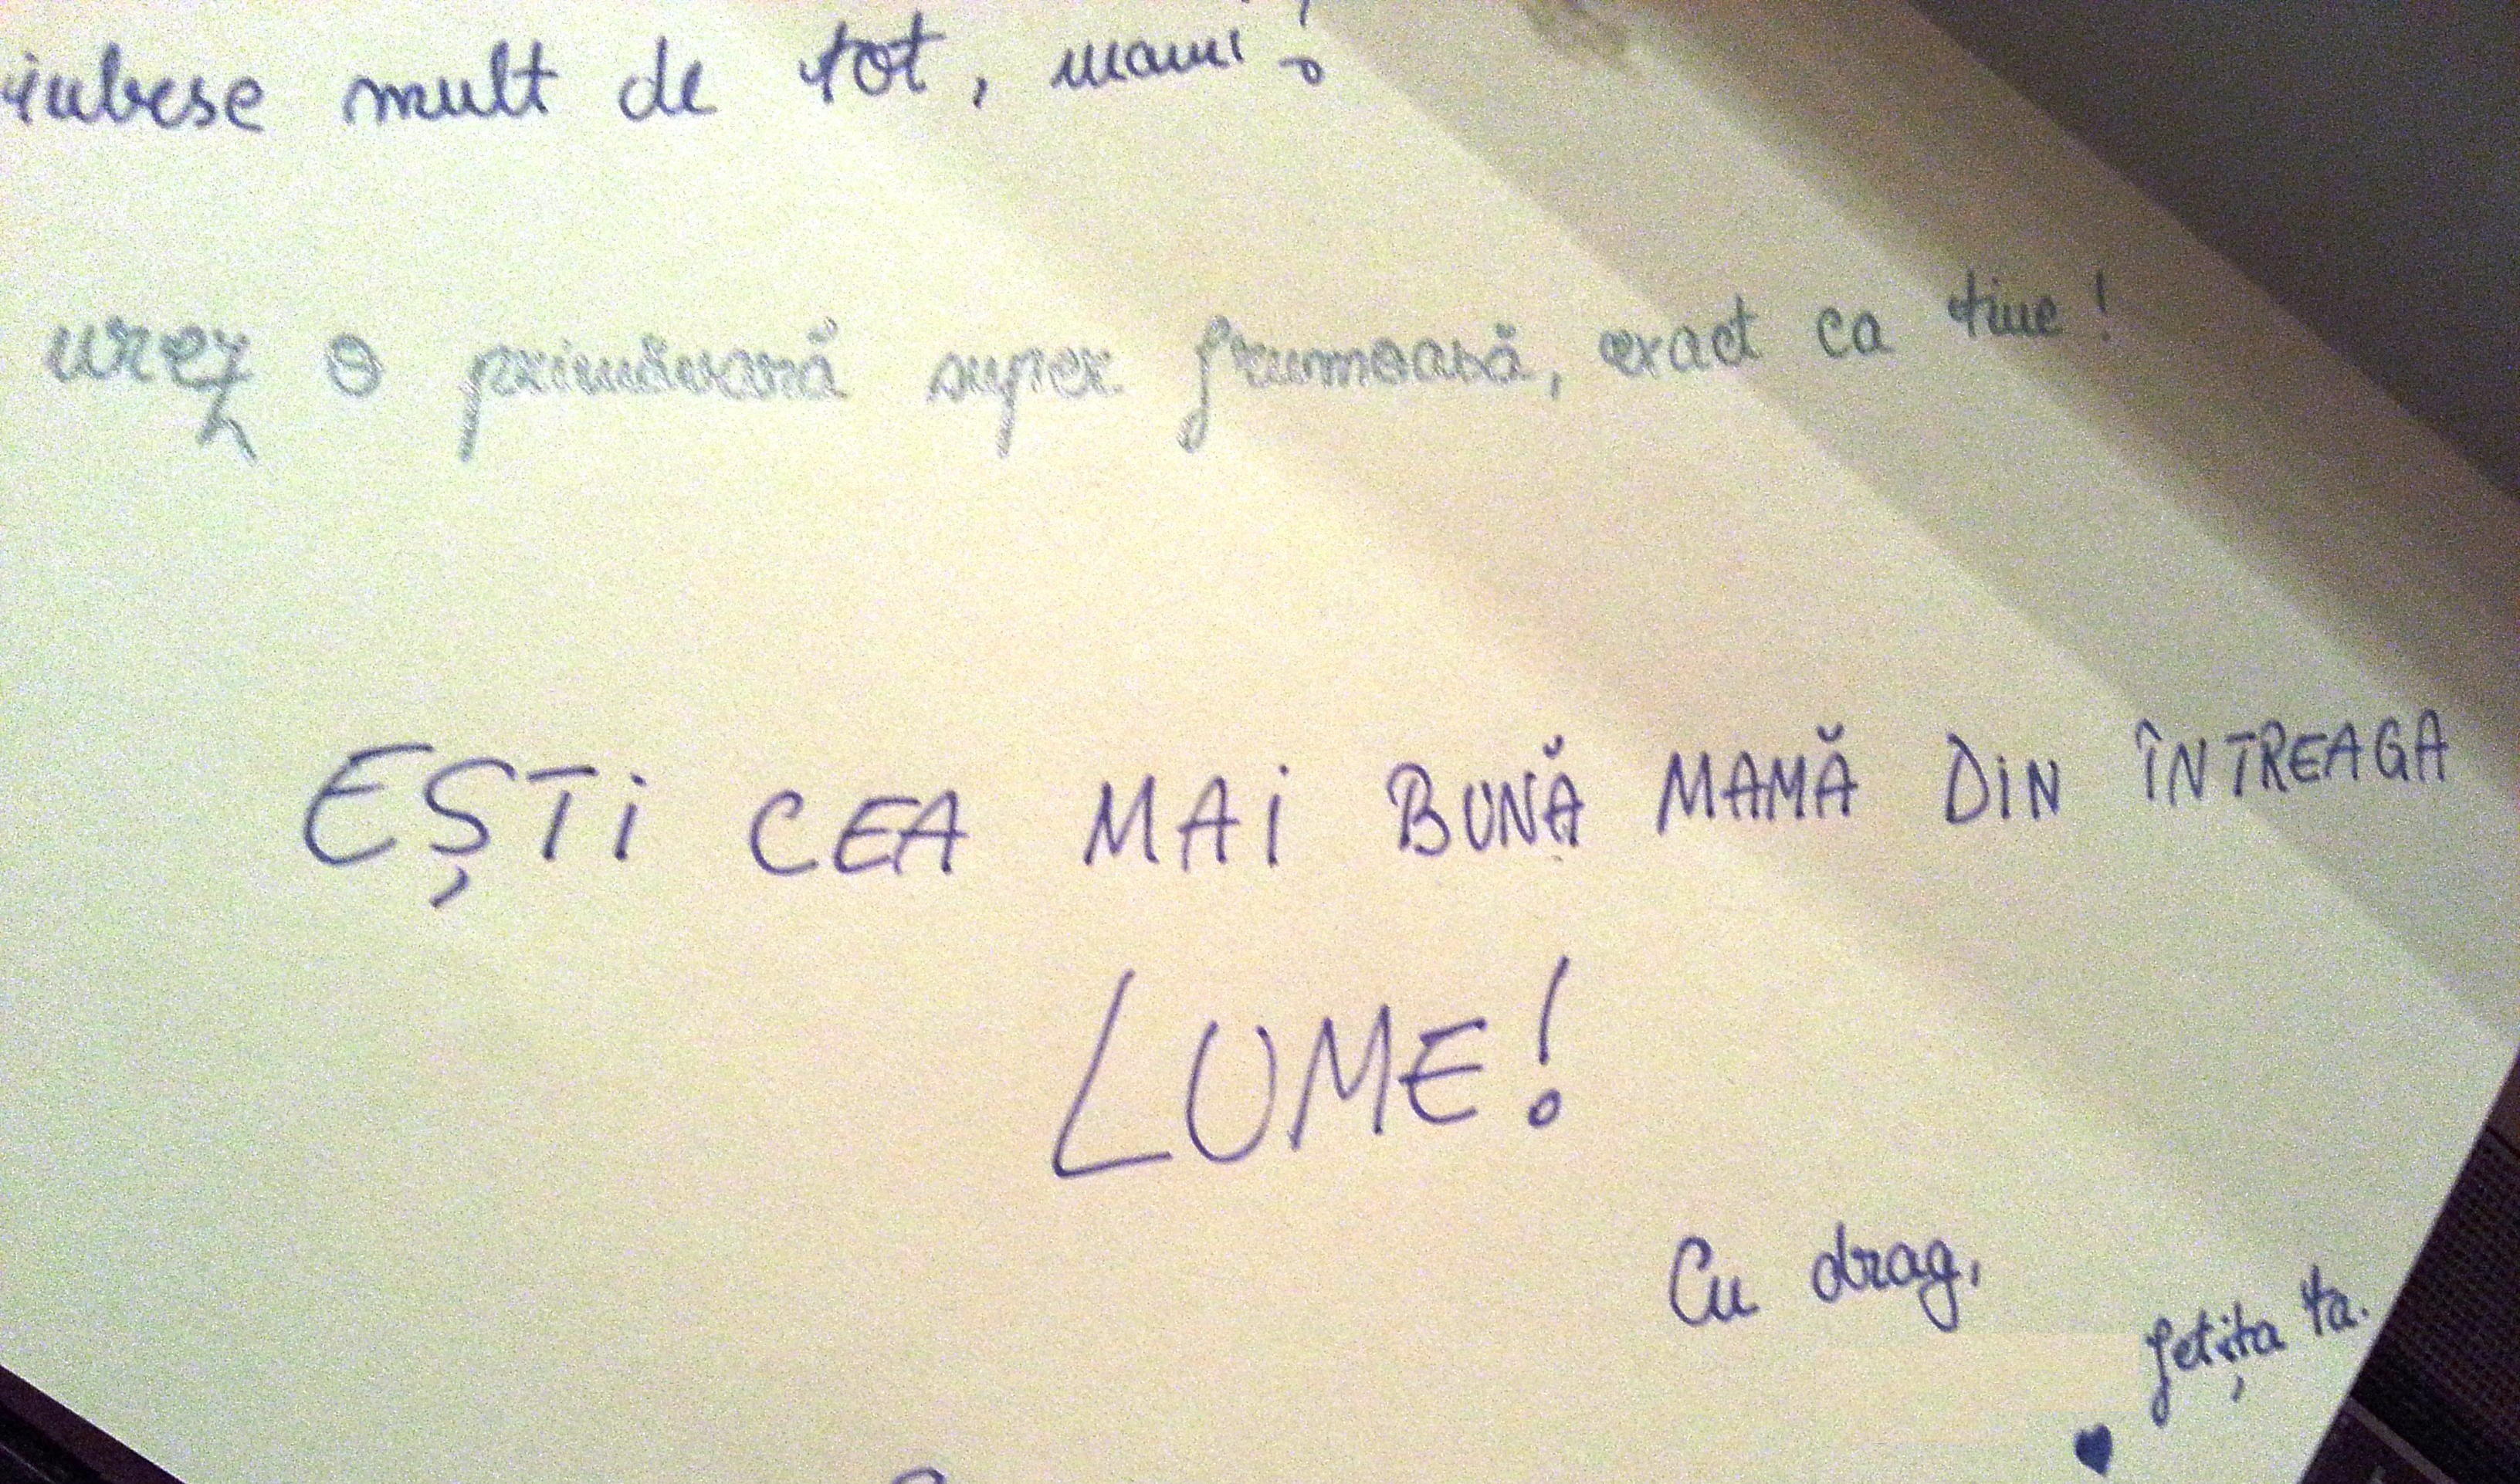 iubesc mult de tot, mami!
urez o primăvară super frumoasă, exact ca tine!
EȘTi CEA MAi BUNĂ MAMĂ DiN ÎNTREAGA
LUME!
Cu drag,
fetița ta.